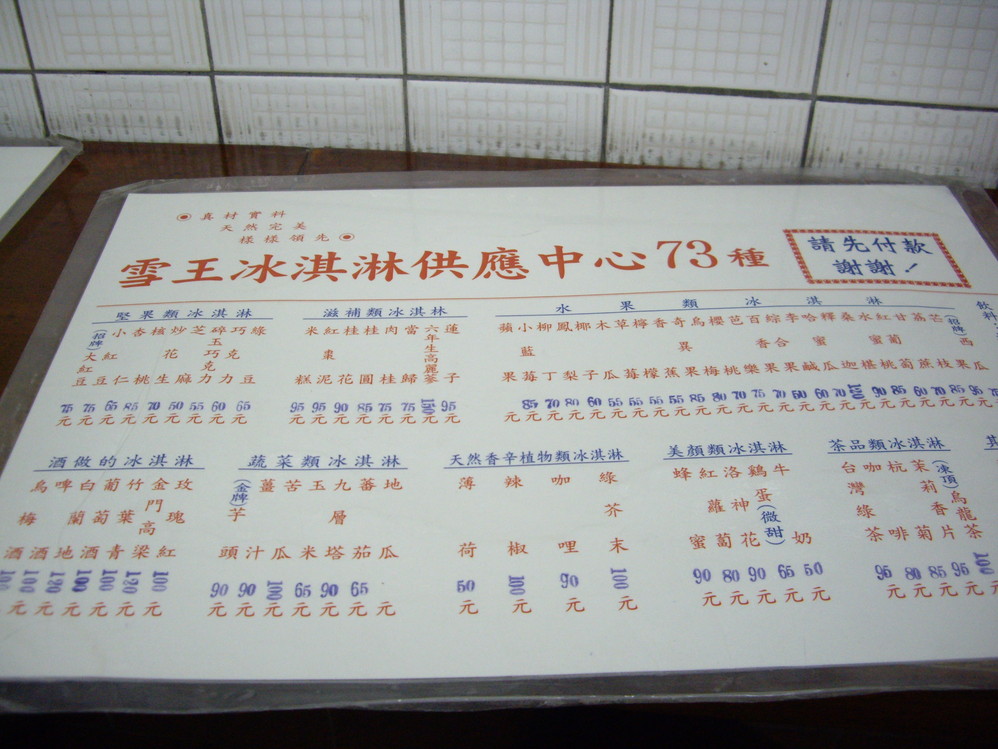 真材實料
天然完美
樣樣領先
雪王冰淇淋供應中心73種
請先付款
謝謝！
堅果類冰淇淋
(招牌)大紅豆
小紅豆
杏仁
核桃
炒花生
芝麻
碎玉巧克力
巧克力
綠豆
75 75 65 85 70 50 55 60 65
元元元元元元元元元
滋補類冰淇林
米糕
紅棗泥
桂花
桂圓
肉桂
當歸
六年生高麗蔘
蓮子
95 95 90 85 75 75 150 95
元元元元元元元元
水果類冰淇淋
蘋果
小藍莓
柳丁
鳳梨
椰子
木瓜
草莓
檸檬
香蕉
奇異果
烏梅
櫻桃
芭樂
百香果
綜合果
李鹹
哈蜜瓜
釋迦
桑椹
水蜜桃
紅葡萄
甘蔗
荔枝
芒果
(招牌)西瓜
85 70 80 60 55 55 55
飲料
酒做的冰淇淋
烏梅酒
啤酒
白蘭地
葡萄酒
竹葉青
金門高梁
玫瑰紅
100 100 120 100 100 120 100
元元元元元元元
蔬菜類冰淇淋
(金牌)芋頭
薑汁
苦瓜
玉米
九層塔
蕃茄
地瓜
90 90 100 65 90 65
元元元元元元元
天然香辛植物類冰淇淋
薄荷
辣椒
咖哩
綠芥末
50 100 90 100
元元元元
美顏類冰淇淋
蜂蜜
紅蘿蔔
洛神花
鷄蛋(微甜)
牛奶
90 80 90 65 50
元元元元元
茶品類冰淇淋
台灣綠茶
咖啡
杭菊
茉莉香片
(凍頂)烏龍茶
95 80 85 95 100
元元元元元